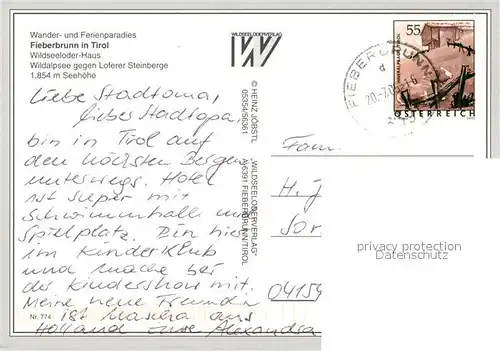 Wander- und Ferienparadies
Fieberbrunn in Tirol
Wildseeloder-Haus
Wildalpsee gegen Loferer Steinberge
1.854 m Seehöhe
Liebe Stadtoma,
liebes Stadtopa,
bin in Tirol auf
den höchsten Bergen
unterwegs. Hotel
ist super mit
Schwimmhalle und
Spielplatz. Bin hier
im Kinderklub
und mache bei
der Kindershow mit.
Meine neue Freundin
ist Mascha aus
Holland eure Alexandra
Nr. 774
WILDSEELODERVERLAG
© HEINZ JÖBSTL "WILDSEELODERVERLAG"
05354/56361 A-6391 FIEBERBRUNN/TIROL
FIEBERBRUNN
55
ÖSTERREICH
Fam.
H. J
04159
privacy protection
ansichtskarten-center.de